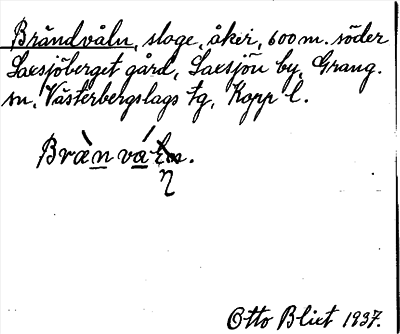 Brändvåln, sloge, åker, 600 m. söder
Saxsjöberget gård, Saxsjön by, Grang.
sn. Västerbergslags tg, Kopp l.
Bræ̀n vá
Otto Blixt 1937.